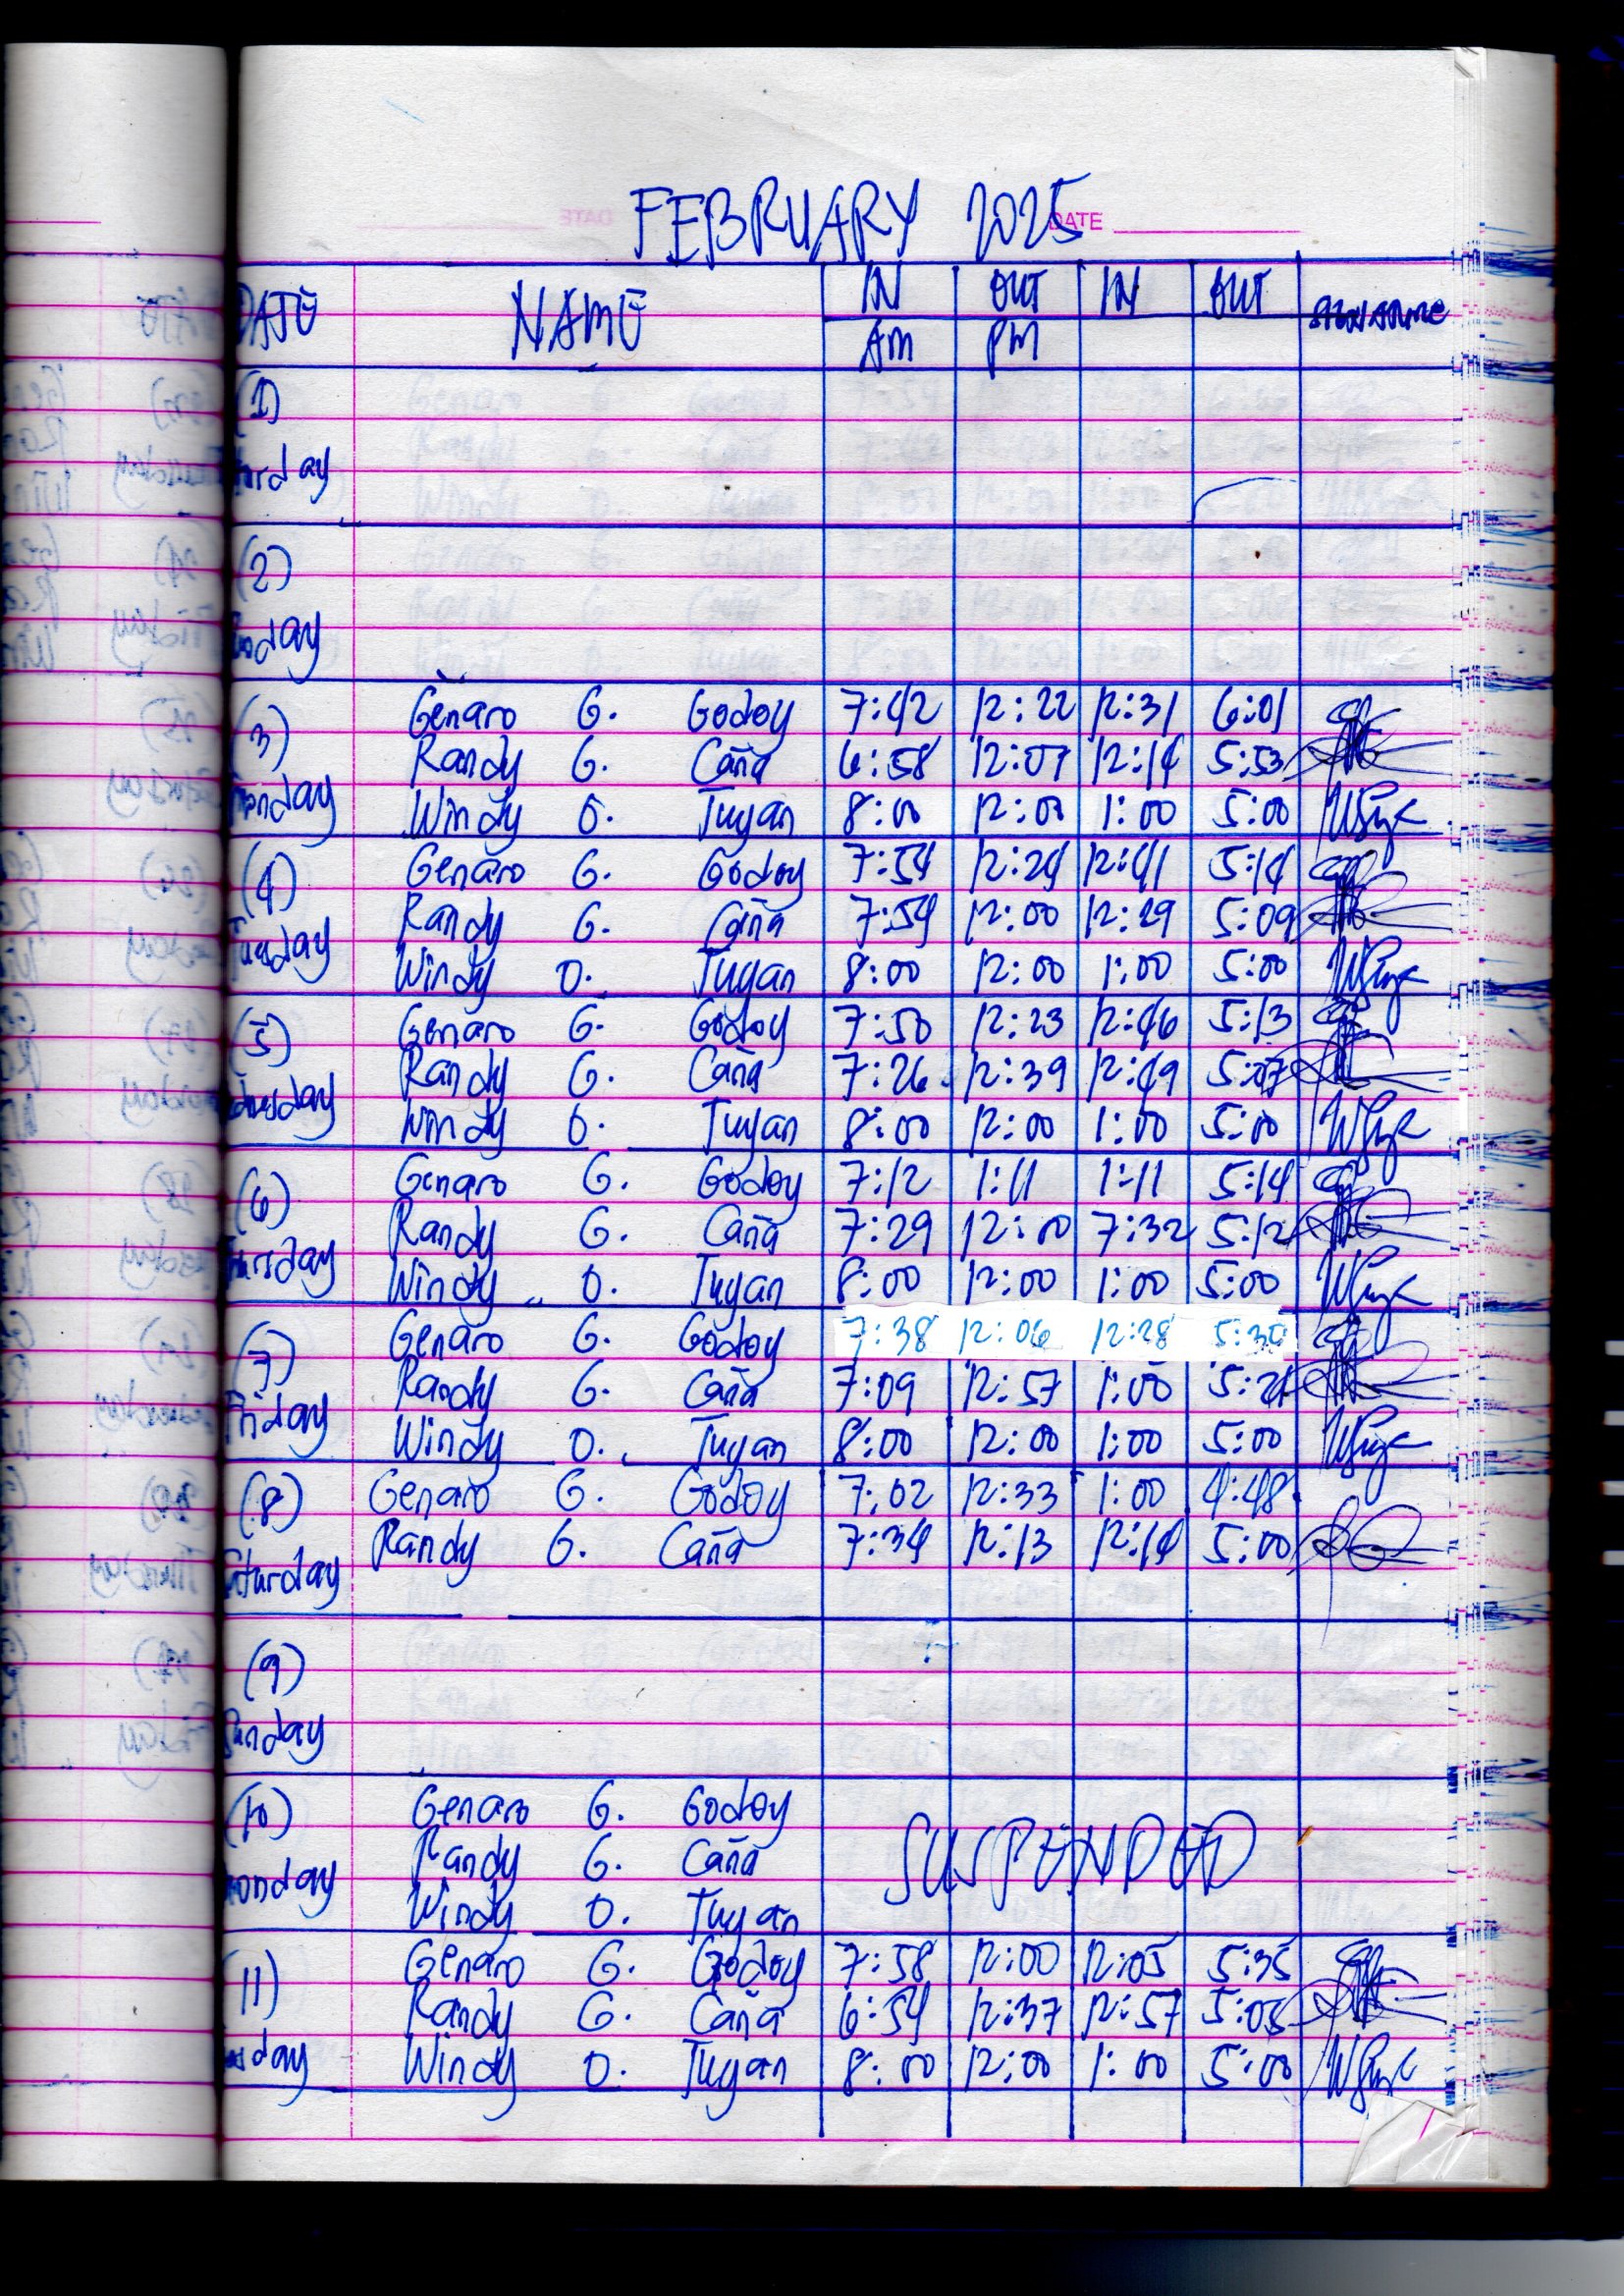 FEBRUARY 2025
DATE
DATE NAME IN OUT IN OUT
AM PM
(1)
(2)
Genaro G. Godoy 7:42 12:22 12:31 6:01
(3) Randy G. Caña 6:58 12:07 12:14 5:53
Windy O. Tuyan 8:00 12:00 1:00 5:00
Genaro G. Godoy 7:54 12:24 12:41 5:14
(4) Randy G. Caña 7:54 12:00 12:29 5:09
Windy O. Tuyan 8:00 12:00 1:00 5:00
Genaro G. Godoy 7:50 12:23 12:46 5:13
(5) Randy G. Caña 7:26 12:39 12:49 5:07
Windy O. Tuyan 8:00 12:00 1:00 5:00
Genaro G. Godoy 7:12 1:11 1:11 5:14
(6) Randy G. Caña 7:29 12:00 7:32 5:12
Windy O. Tuyan 8:00 12:00 1:00 5:00
Genaro G. Godoy 7:38 12:06 12:28 5:30
(7) Randy G. Caña 7:09 12:57 1:00 5:21
Friday Windy O. Tuyan 8:00 12:00 1:00 5:00
(8) Genaro G. Godoy 7:02 12:33 1:00 4:48
Randy G. Caña 7:34 12:13 12:14 5:00
(9)
Sunday
(10) Genaro G. Godoy
Randy G. Caña SUSPENDED
Windy O. Tuyan
Genaro G. Godoy 7:58 12:00 12:05 5:35
(11) Randy G. Caña 6:54 12:37 12:57 5:05
Windy O. Tuyan 8:00 12:00 1:00 5:00